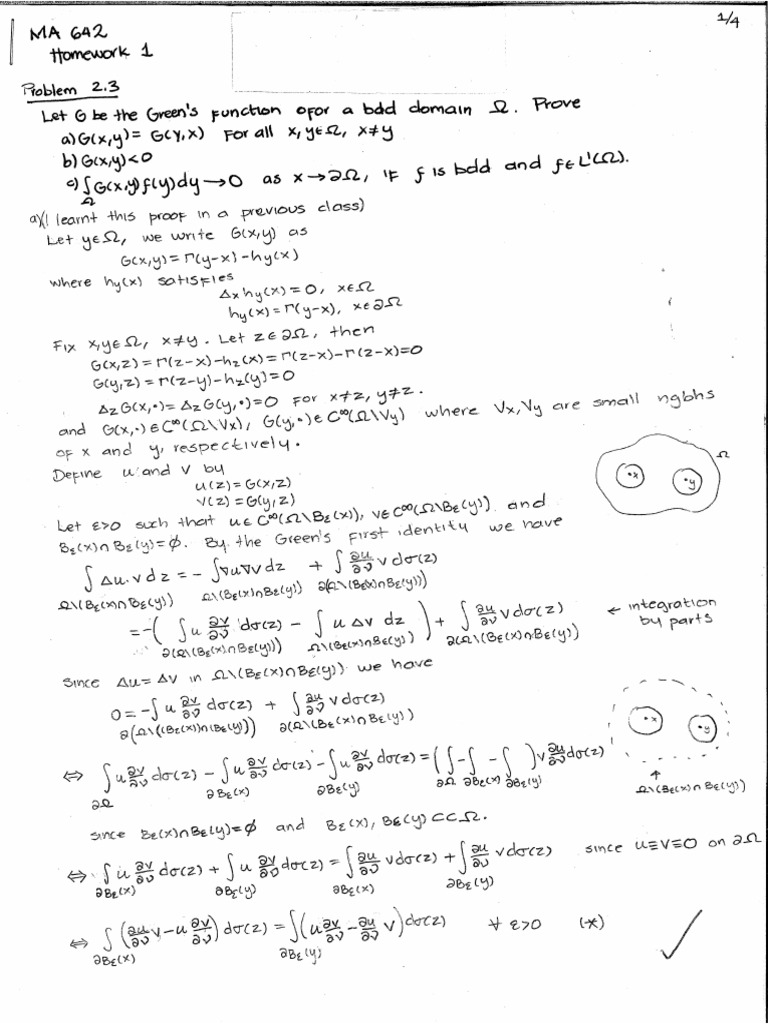 1/4
MA 642
Homework 1
Problem 2.3
Let G be the Green's function ofor a bdd domain Ω. Prove
a) G(x,y) = G(y,x) For all x,y∈Ω, x≠y
b) G(x,y)<0
c) ∫_Ω G(x,y)f(y)dy → 0 as x→∂Ω, if f is bdd and f∈L¹(Ω).
a)(I learnt this proof in a previous class)
Let y∈Ω, we write G(x,y) as
G(x,y) = Γ(y-x) - h_y(x)
where h_y(x) satisfies
Δ_x h_y(x) = 0, x∈Ω
h_y(x) = Γ(y-x), x∈∂Ω
Fix x,y∈Ω, x≠y. Let z∈∂Ω, then
G(x,z) = Γ(z-x) - h_z(x) = Γ(z-x) - Γ(z-x) = 0
G(y,z) = Γ(z-y) - h_z(y) = 0
Δ_z G(x,•) = Δ_z G(y,•) = 0 for x≠z, y≠z.
and G(x,•)∈C^∞(Ω\V_x), G(y,•)∈C^∞(Ω\V_y) where V_x, V_y are small ngbhs
of x and y, respectively.
Define u and v by
u(z) = G(x,z)
v(z) = G(y,z)
•x •y Ω
Let ε>0 such that u∈C^∞(Ω\B_ε(x)), v∈C^∞(Ω\B_ε(y)) and
B_ε(x)∩B_ε(y)=∅. By the Green's first identity we have
∫_{Ω\(B_ε(x)∩B_ε(y))} Δu·v dz = -∫_{Ω\(B_ε(x)∩B_ε(y))} ∇u∇v dz + ∫_{∂(Ω\(B_ε(x)∩B_ε(y)))} ∂u/∂ν v dσ(z)
= -( ∫_{∂(Ω\(B_ε(x)∩B_ε(y)))} u ∂v/∂ν dσ(z) - ∫_{Ω\(B_ε(x)∩B_ε(y))} u Δv dz ) + ∫_{∂(Ω\(B_ε(x)∩B_ε(y)))} ∂u/∂ν v dσ(z) ← integration by parts
Since Δu = Δv in Ω\(B_ε(x)∩B_ε(y)) we have
0 = -∫_{∂(Ω\((B_ε(x)∩(B_ε(y)))} u ∂v/∂ν dσ(z) + ∫_{∂(Ω\(B_ε(x)∩B_ε(y))} ∂u/∂ν v dσ(z)
•x •y
⇔ ∫_{∂Ω} u ∂v/∂ν dσ(z) - ∫_{∂B_ε(x)} u ∂v/∂ν dσ(z) - ∫_{∂B_ε(y)} u ∂v/∂ν dσ(z) = ( ∫_{∂Ω} - ∫_{∂B_ε(x)} - ∫_{∂B_ε(y)} ) v ∂u/∂ν dσ(z)
↑
Ω\(B_ε(x)∩B_ε(y))
since B_ε(x)∩B_ε(y)=∅ and B_ε(x), B_ε(y) ⊂⊂ Ω.
⇔ ∫_{∂B_ε(x)} u ∂v/∂ν dσ(z) + ∫_{∂B_ε(y)} u ∂v/∂ν dσ(z) = ∫_{∂B_ε(x)} ∂u/∂ν v dσ(z) + ∫_{∂B_ε(y)} ∂u/∂ν v dσ(z) since u≡v≡0 on ∂Ω
⇔ ∫_{∂B_ε(x)} (∂u/∂ν v - u ∂v/∂ν) dσ(z) = ∫_{∂B_ε(y)} (u ∂v/∂ν - ∂u/∂ν v) dσ(z) ∀ ε>0 (*)